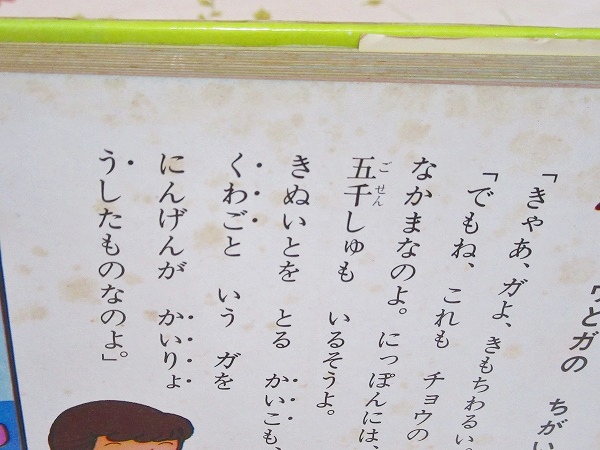 ウとガの ちがい
「きゃあ、ガよ、きもちわるい。
「でもね、これも チョウの
なかまなのよ。にっぽんには、
五千しゅも いるそうよ。
きぬいとを とる かいこも、
くわごと いう ガを
にんげんが かいりょ
うしたものなのよ。」
ごせん